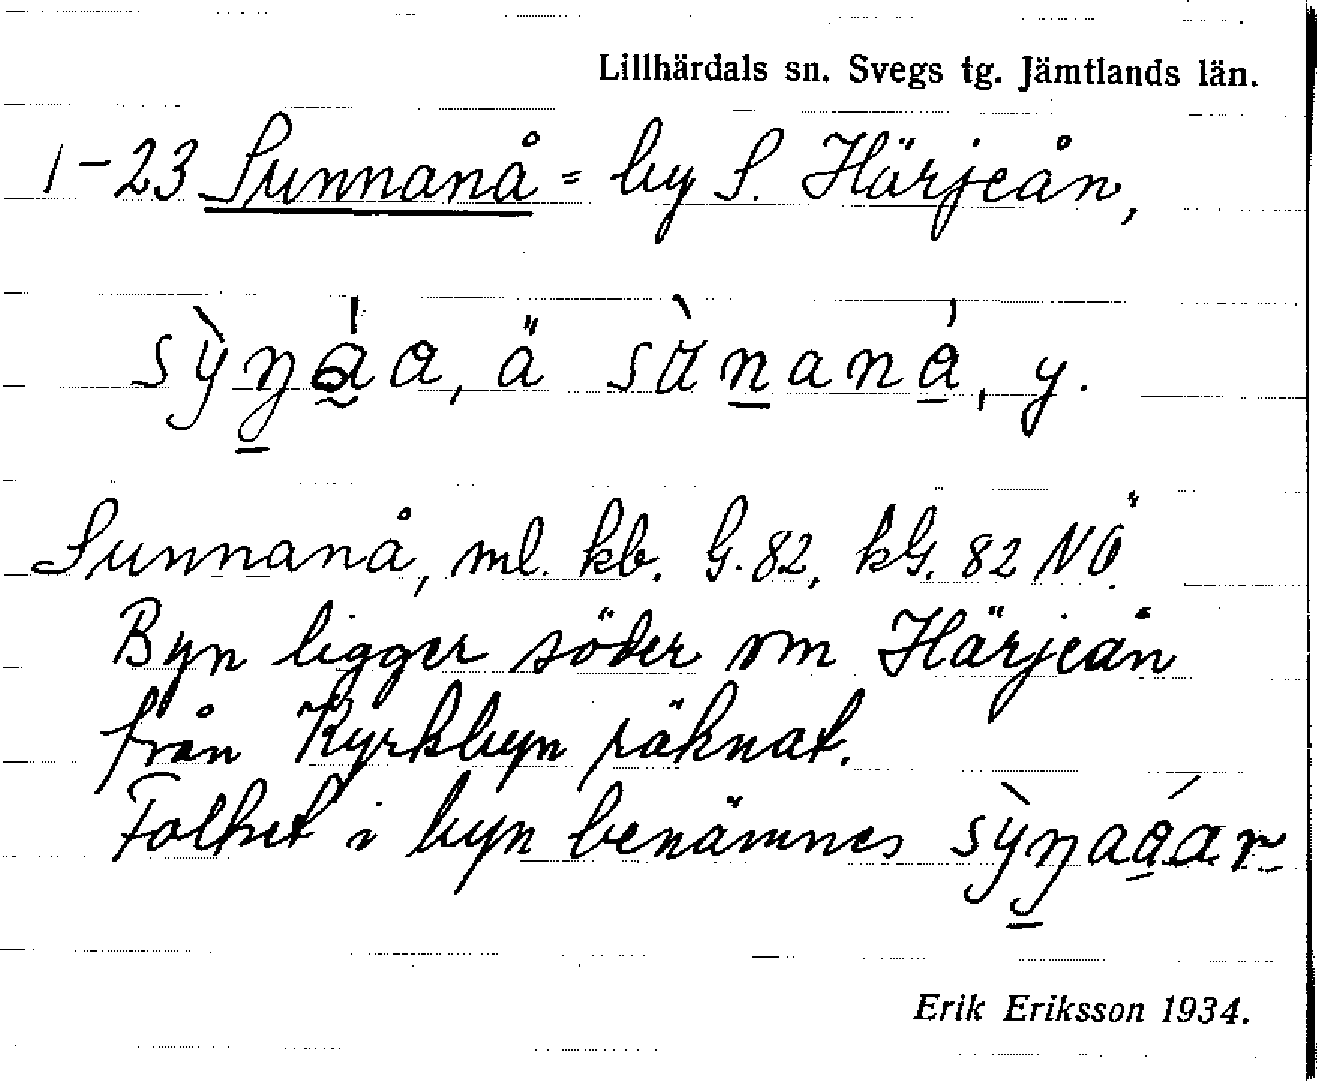 Lillhärdals sn. Svegs tg. Jämtlands län.
1-23 Sunnanå = by S. Härjeån,
sỳŋáa, ä sànaná, y.
Sunnanå, ml. kb. G. 82, kG. 82 NÖ.
Byn ligger söder om Härjeån
från Kyrkbyn räknat.
Folket i byn benämnes sỳŋaáar
Erik Eriksson 1934.